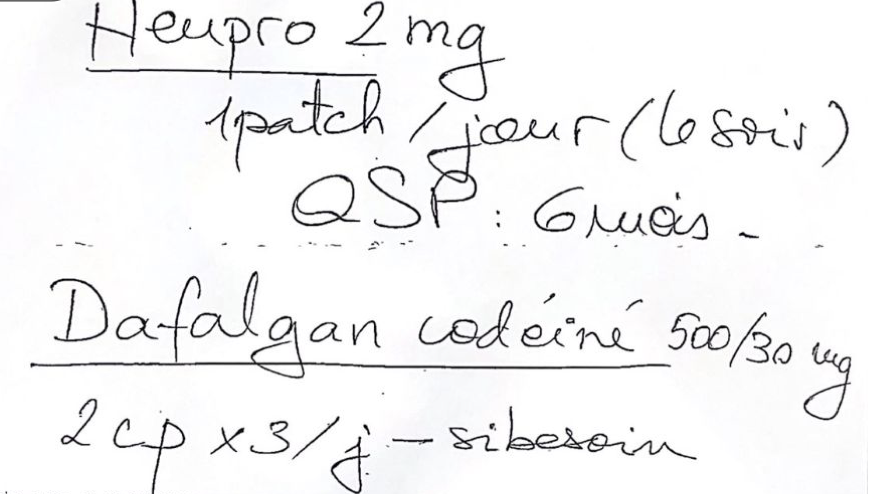 Heupro 2 mg
1 patch / jour (le soir)
QSP : 6 mois -
Dafalgan codéiné 500/30 mg
2 cp x 3/j - si besoin